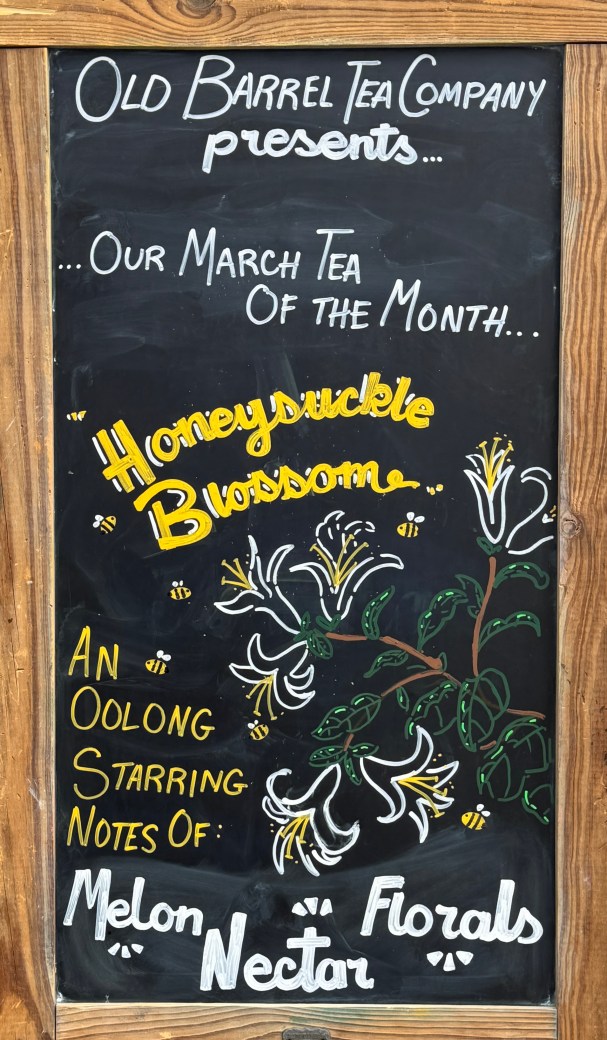 OLD BARREL TEA COMPANY
presents...
...OUR MARCH TEA
OF THE MONTH...
Honeysuckle
Blossom
AN
OOLONG
STARRING
NOTES OF:
Melon
Florals
Nectar